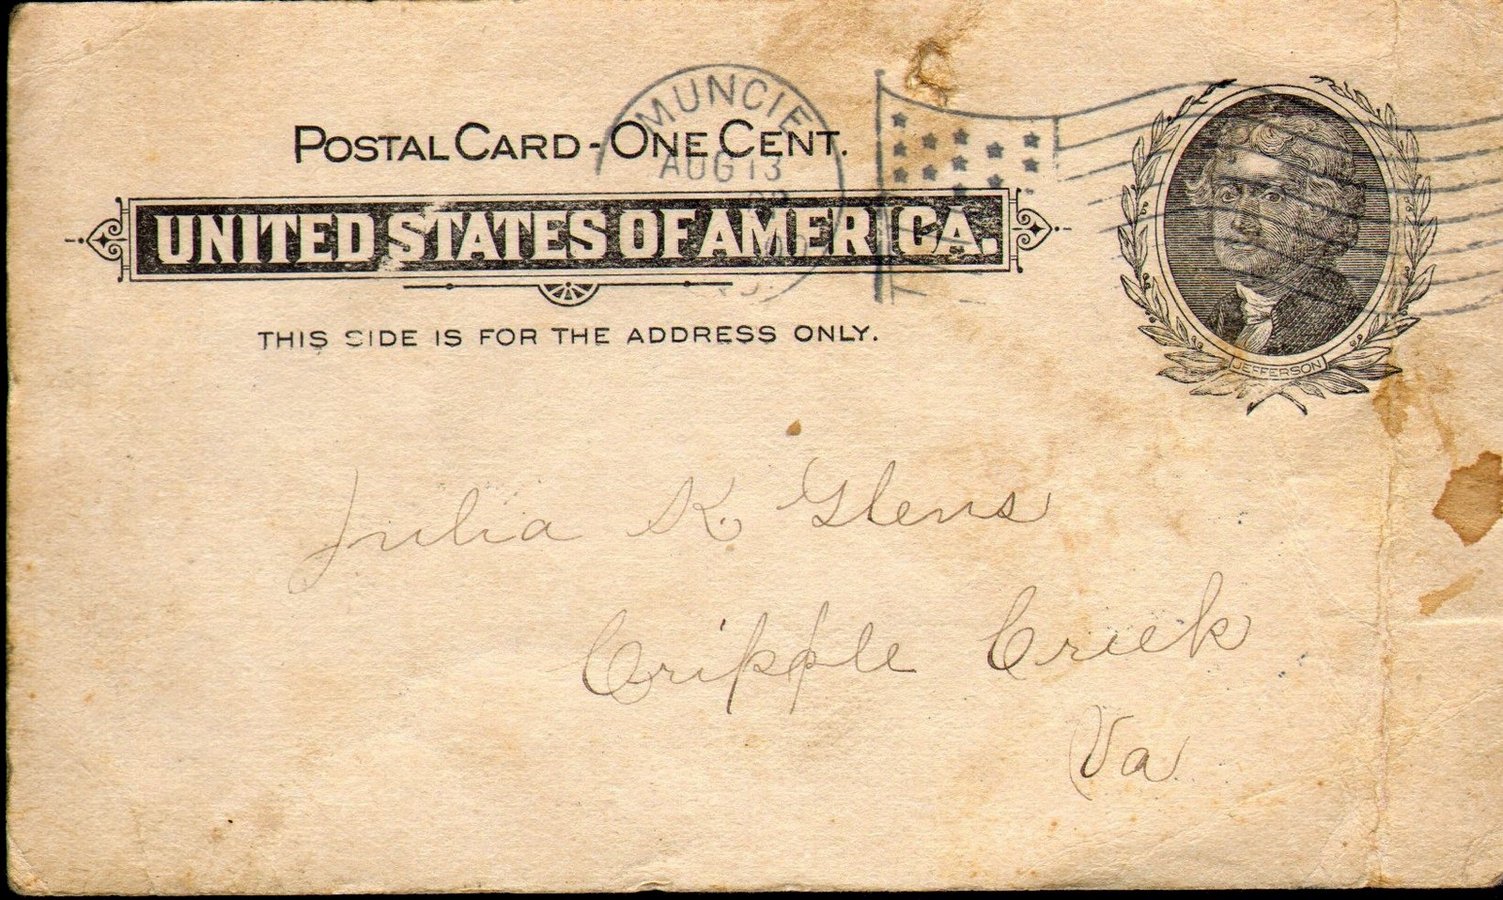 MUNCIE
POSTAL CARD - ONE CENT.
AUG 13
UNITED STATES OF AMERICA.
THIS SIDE IS FOR THE ADDRESS ONLY.
JEFFERSON
Julia K. Glens
Cripple Creek
Va